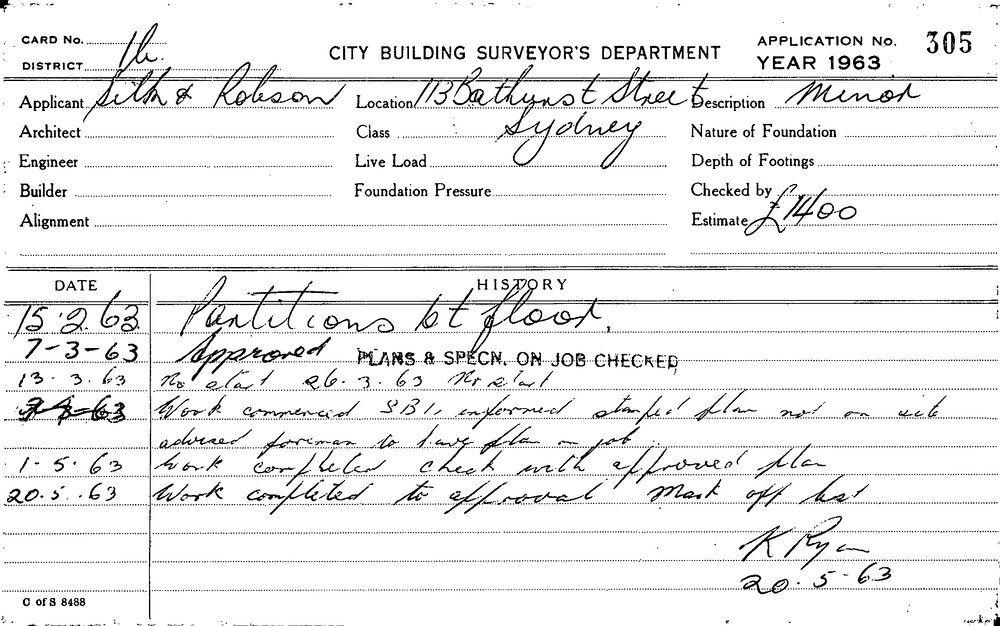 CARD No.
DISTRICT
CITY BUILDING SURVEYOR'S DEPARTMENT
APPLICATION No. 305
YEAR 1963
Applicant Silk & Robson
Location 113 Bathurst Street
Sydney
Description Minor
Architect
Class
Nature of Foundation
Engineer
Live Load
Depth of Footings
Builder
Foundation Pressure
Checked by
Alignment
Estimate £1400
DATE HISTORY
15.2.63 Partitions 1st floor.
7-3-63 Approved PLANS & SPECN. ON JOB CHECKED
13.3.63 No start 26.3.63 No start
Work commenced informed stamped plan not on site
advised foreman to have plan on job
1.5.63 Work completed check with approved plan
20.5.63 Work completed to approval Mark off list
K Ryan
20.5.63
C of S 8488